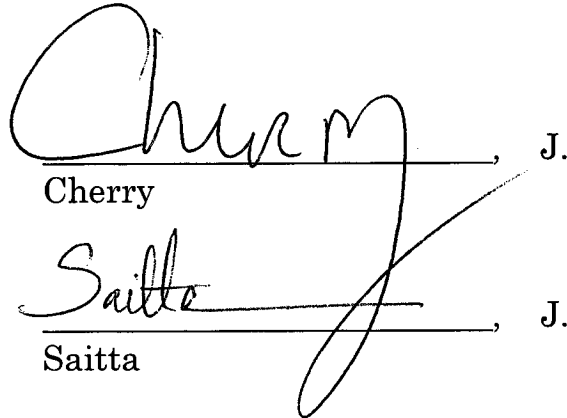 Cherry, J.
Cherry
Saitta, J.
Saitta